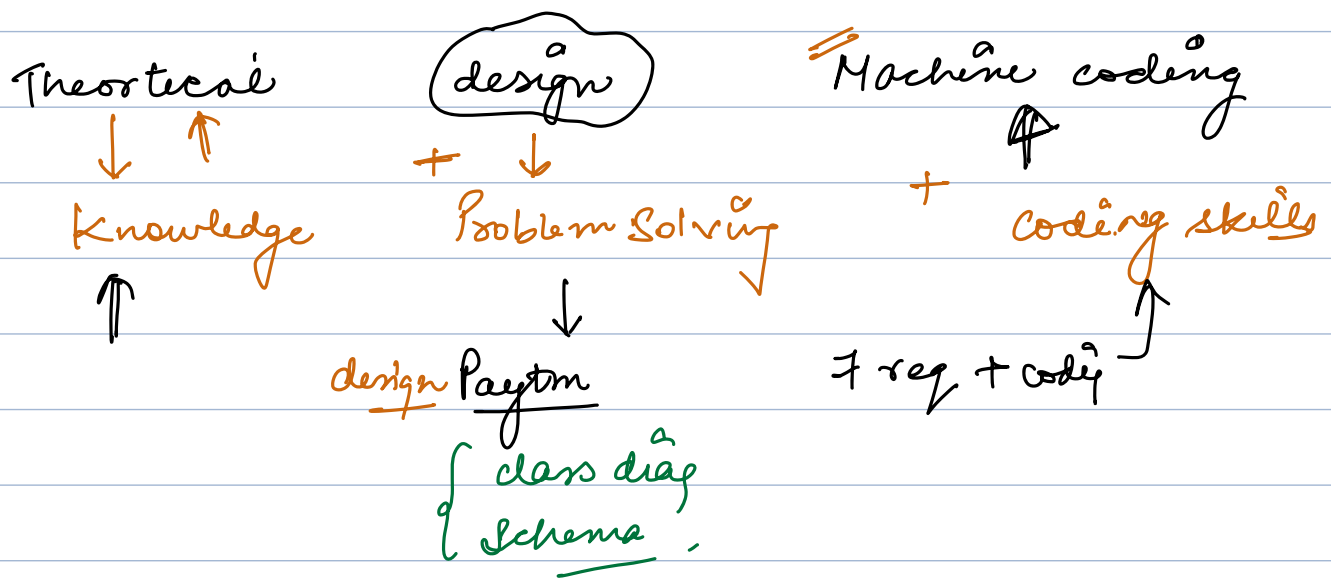 Theortical design Machine coding
Knowledge + Problem Solving + coding skills
design Paytm 7 req + codi
class diag
Schema